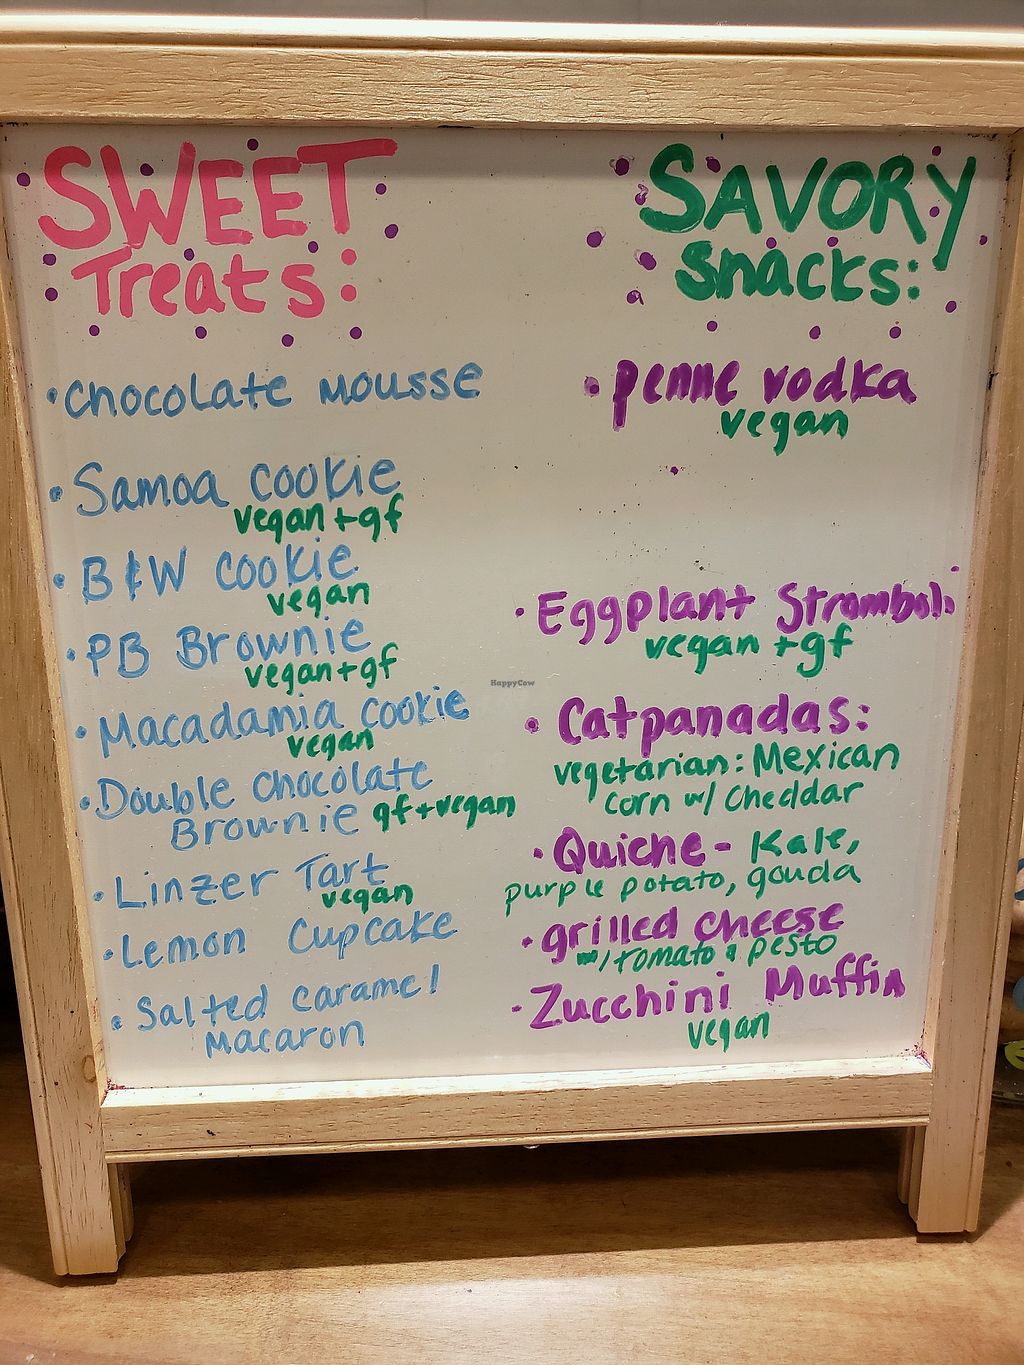 SWEET
Treats:
• Chocolate Mousse
• Samoa Cookie
vegan + gf
• B&W Cookie
vegan
• PB Brownie
vegan + gf
• Macadamia Cookie
vegan
• Double Chocolate
Brownie gf + vegan
• Linzer Tart
vegan
• Lemon Cupcake
• Salted Caramel
Macaron
SAVORY
Snacks:
• Penne vodka
vegan
• Eggplant Stromboli
vegan + gf
• Catpanadas:
vegetarian: Mexican
corn w/ Cheddar
• Quiche - Kale,
purple potato, gouda
• grilled cheese
w/ tomato & pesto
• Zucchini Muffin
vegan
HappyCow